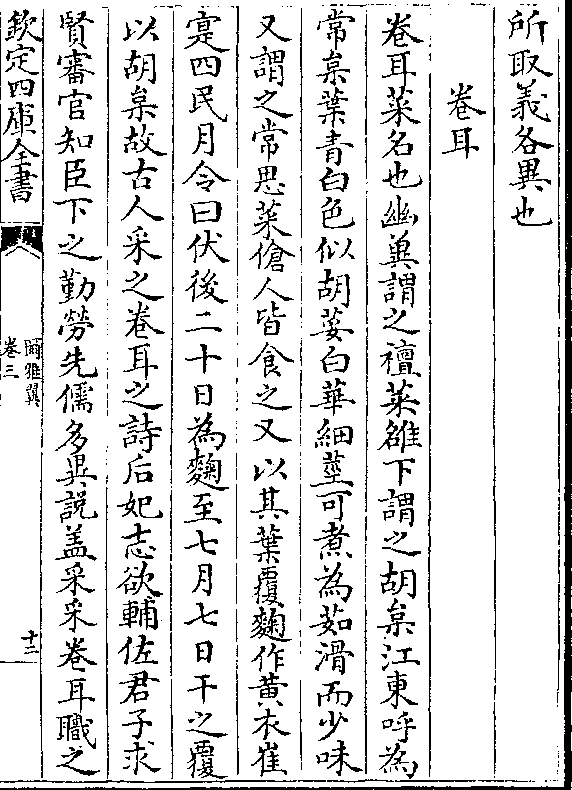 所取義各異也
卷耳
卷耳菜名也幽冀謂之襢菜雒下謂之胡枲江東呼為
常枲葉青白色似胡荽白華細莖可煮為茹滑而少味
又謂之常思菜傖人皆食之又以其葉覆麴作黄衣崔
寔四民月令曰伏後二十日為麴至七月七日干之覆
以胡枲故古人采之卷耳之詩后妃志欲輔佐君子求
賢審官知臣下之勤勞先儒多異説盖采采卷耳職之
欽定四庫全書
爾雅翼
卷三
十三